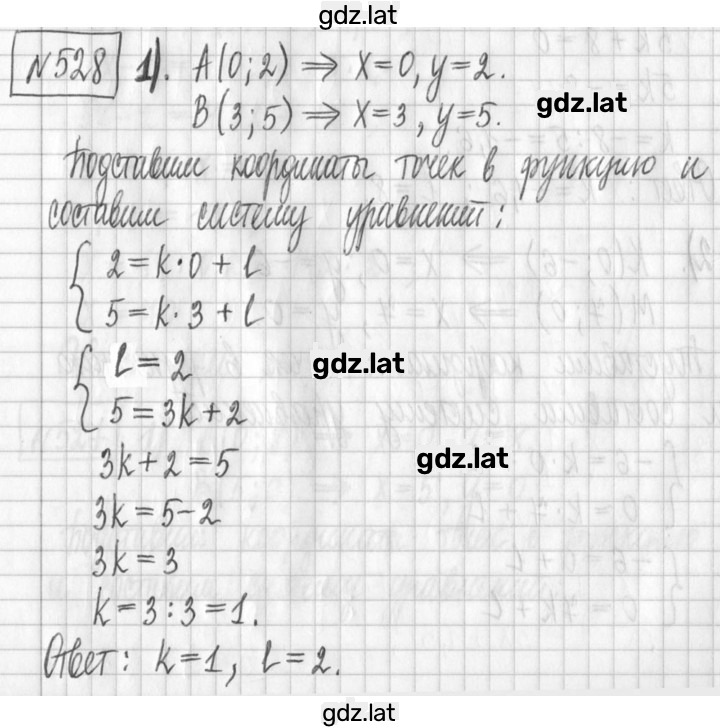 gdz.lat
№528 1). A(0;2) ⇒ x=0, y=2.
B(3;5) ⇒ x=3, y=5.
gdz.lat
Подставим координаты точек в функцию и
составим систему уравнений:
{ 2=k·0+l
5=k·3+l
{ l=2
5=3k+2
gdz.lat
3k+2=5
gdz.lat
3k=5-2
3k=3
k=3:3=1.
Ответ: k=1, l=2.
gdz.lat